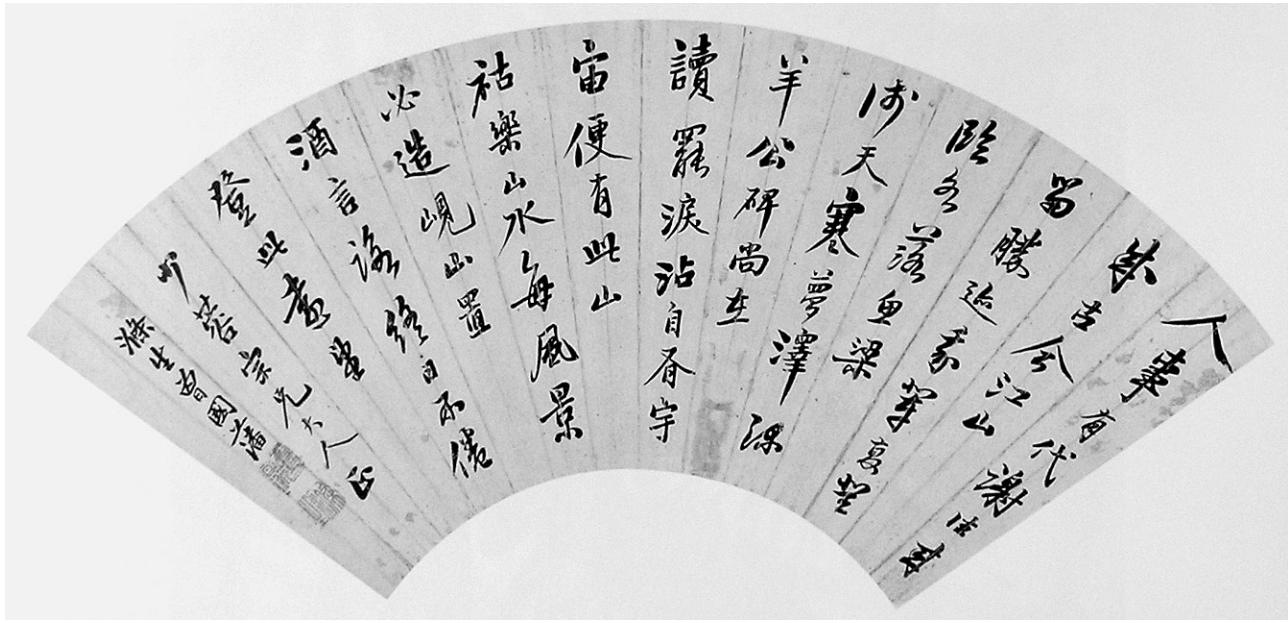 人事有代謝往來
成古今江山
留勝迹我輩復登
臨水落魚梁
淺天寒夢澤深
羊公碑尚在
讀罷淚沾自有宇
宙便有此山
祜樂山水每風景
必造峴山置
酒言詠終日不倦
登此遠望
蓉宗兄大人正
滌生曾國藩